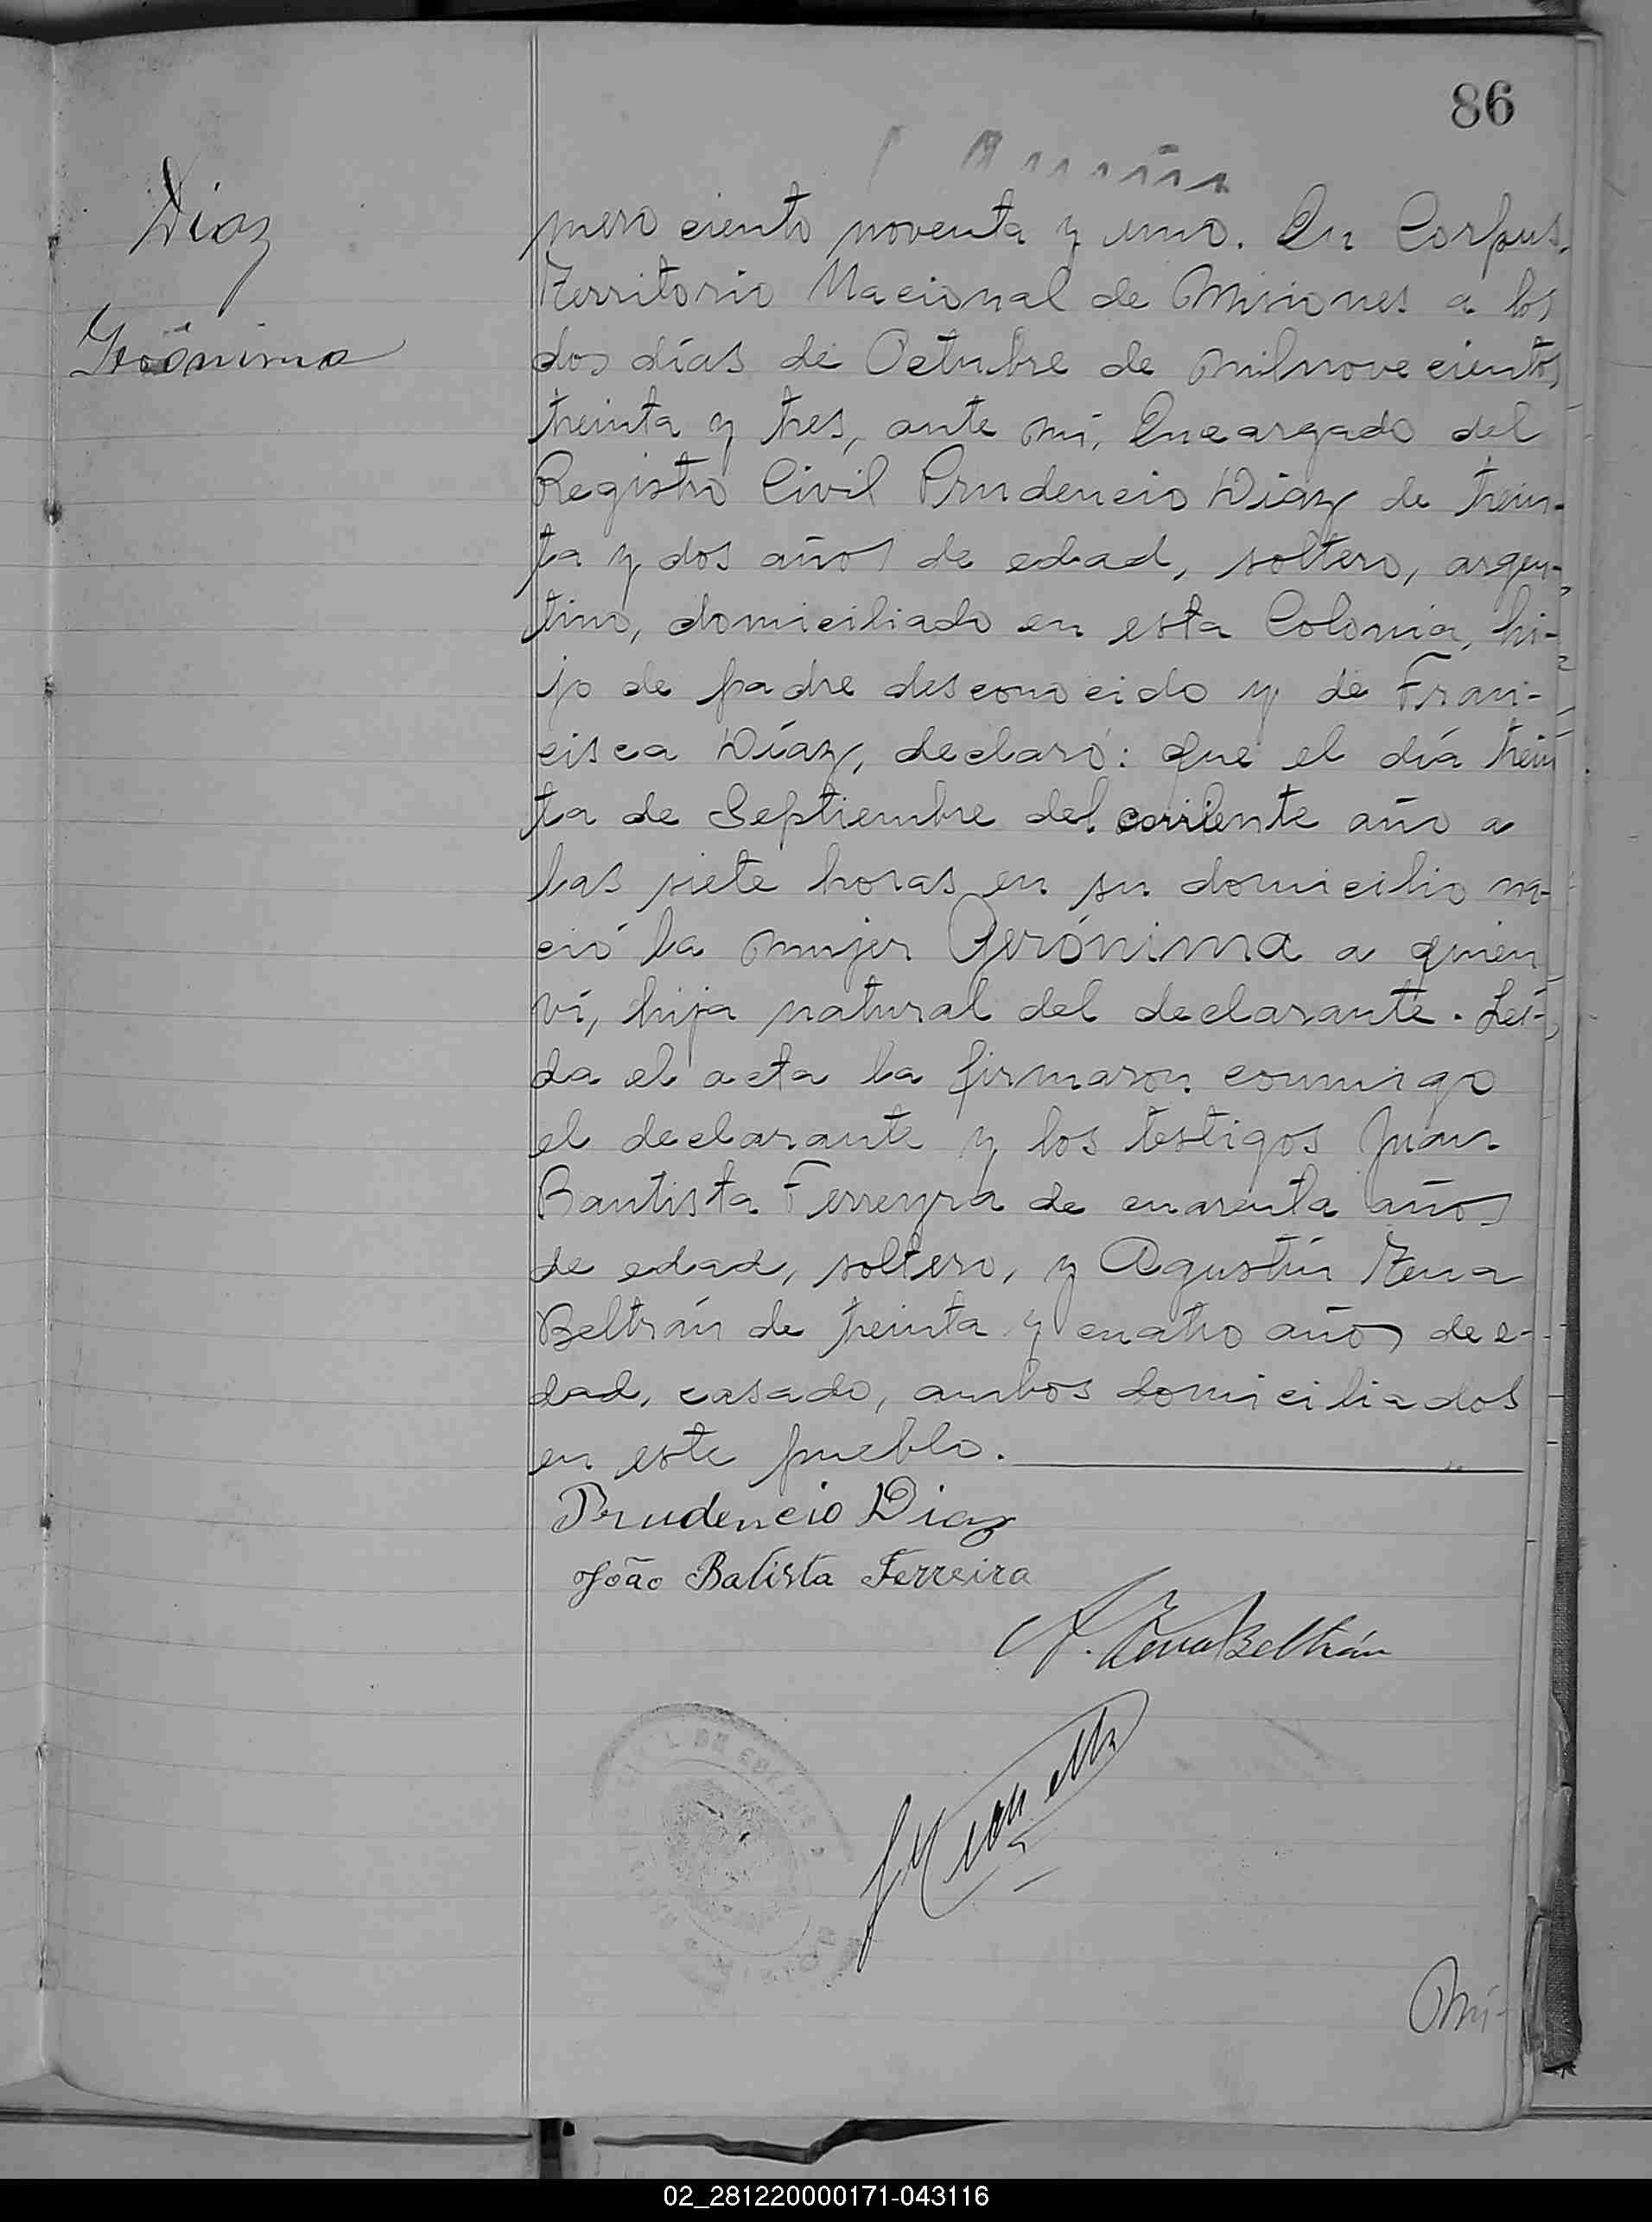 86
Diaz
Gerónima
mero ciento noventa y uno. En Corpus,
Territorio Nacional de Misiones a los
dos días de Octubre de milnovecientos
treinta y tres, ante mí, Encargado del
Registro Civil Prudencio Díaz de trein-
ta y dos años de edad, soltero, argen-
tino, domiciliado en esta Colonia, hi-
jo de padre desconocido y de Fran-
cisca Díaz, declaró: que el día trein
ta de Septiembre del corriente año a
las siete horas en su domicilio na-
ció la mujer Gerónima a quien
ví, hija natural del declarante. Leí-
da el acta la firmaron conmigo
el declarante y los testigos Juan
Bautista Ferreyra de cuarenta años
de edad, soltero, y Agustín Zena
Beltrán de treinta y cuatro años de e-
dad, casado, ambos domiciliados
en este pueblo.
Prudencio Diaz
João Batista Ferreira
A. Zena Beltrán
L DE CORPUS
Mí-
02_281220000171-043116